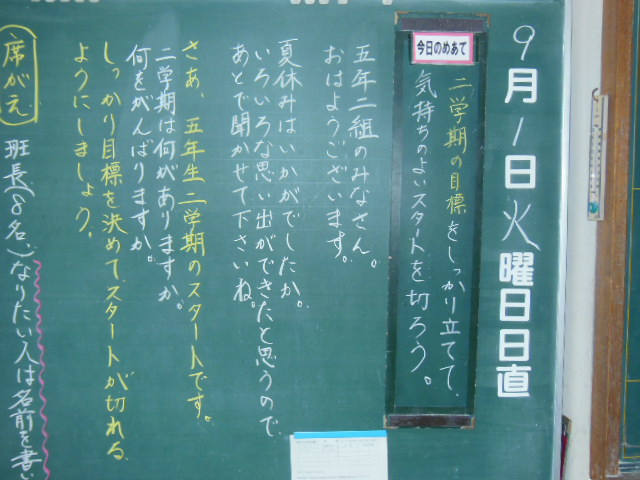 9月1日火曜日日直
今日のめあて
二学期の目標をしっかり立てて、
気持ちのよいスタートを切ろう。
五年二組のみなさん。
おはようございます。
夏休みはいかがでしたか。
いろいろな思い出ができたと思うので
あとで聞かせて下さいね。
さあ、五年生二学期のスタートです。
二学期は何がありますか。
何をがんばりますか。
しっかり目標を決めて、スタートが切れる
ようにしましょう。
席がえ
班長(8名)になりたい人は名前を書い